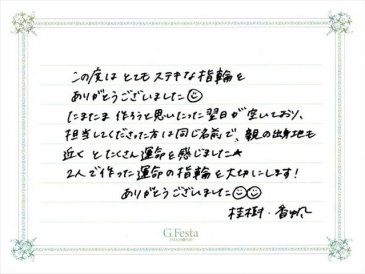 この度は とても ステキな 指輪を
ありがとうございました☺
たまたま 作ろうと思いたった翌日が空いており、
担当してくださった方は同じ名前で、親の出身地も
近く とたくさん運命を感じました★
2人で作った運命の指輪を大切にします!
ありがとうございました☺☺
桂樹・香帆
G.Festa